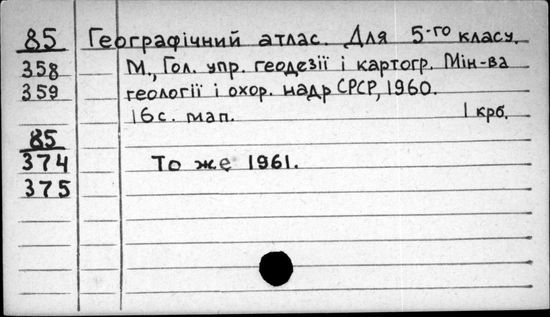 85 Географічний атлас. Для 5-го класу.
358 М., Гол. упр. геодезії і картогр. Мін-ва
359 геології і охор. надр СРСР, 1960.
16 с. мап. 1 крб.
85
374 То же 1961.
375